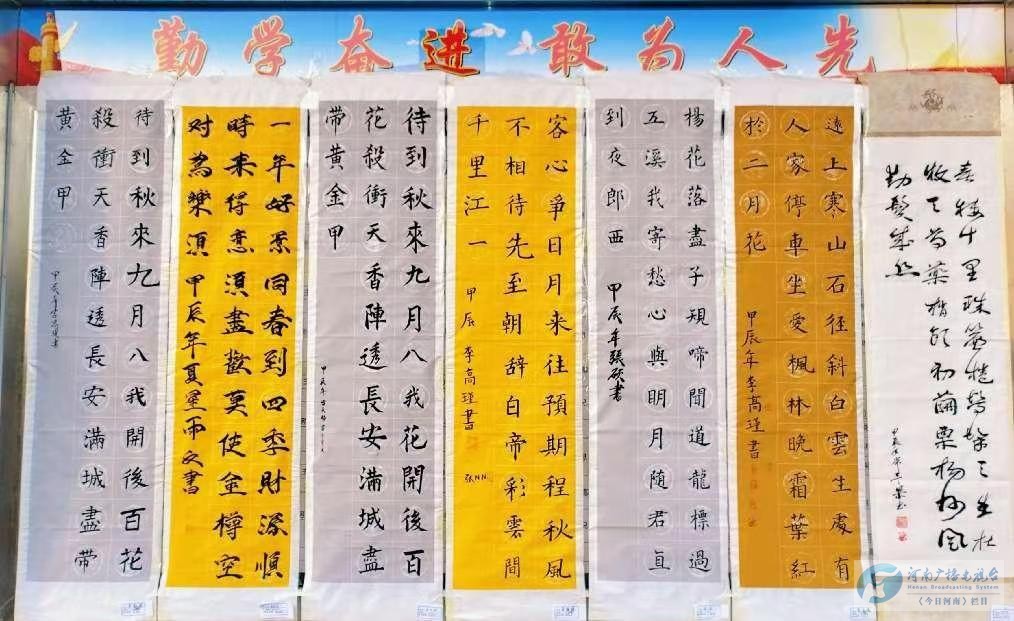 勤学奋进 敢为人先
春風十里珠簾捲髣髴三生杜
牧之藥梢頭初繭栗楊州風
物鬢成絲
遠上寒山石径斜白雲生處有
人家停車坐愛楓林晚霜葉紅
於二月花
甲辰年李高瑾書
楊花落盡子規啼聞道龍標過
五溪我寄愁心與明月随君直
到夜郎西
甲辰年張欣書
客心爭日月来往預期程秋風
不相待先至朝辞白帝彩雲間
千里江一
甲辰 李高瑾書
待到秋來九月八我花開後百
花殺衝天香陣透長安滿城盡
帶黄金甲
一年好景同春到四季財源順
時来得意須盡歡莫使金樽空
对為樂須 甲辰年夏星雨文書
待到秋來九月八我開後百花
殺衝天香陣透長安滿城盡帶
黄金甲
河南广播电视台
Henan Broadcasting System
《今日河南》栏目